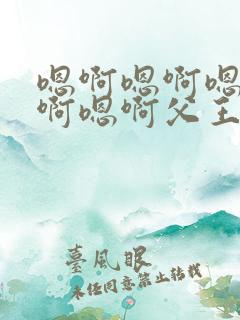 嗯啊嗯啊嗯
啊嗯啊父王
臺風眠
未经同意禁止转载